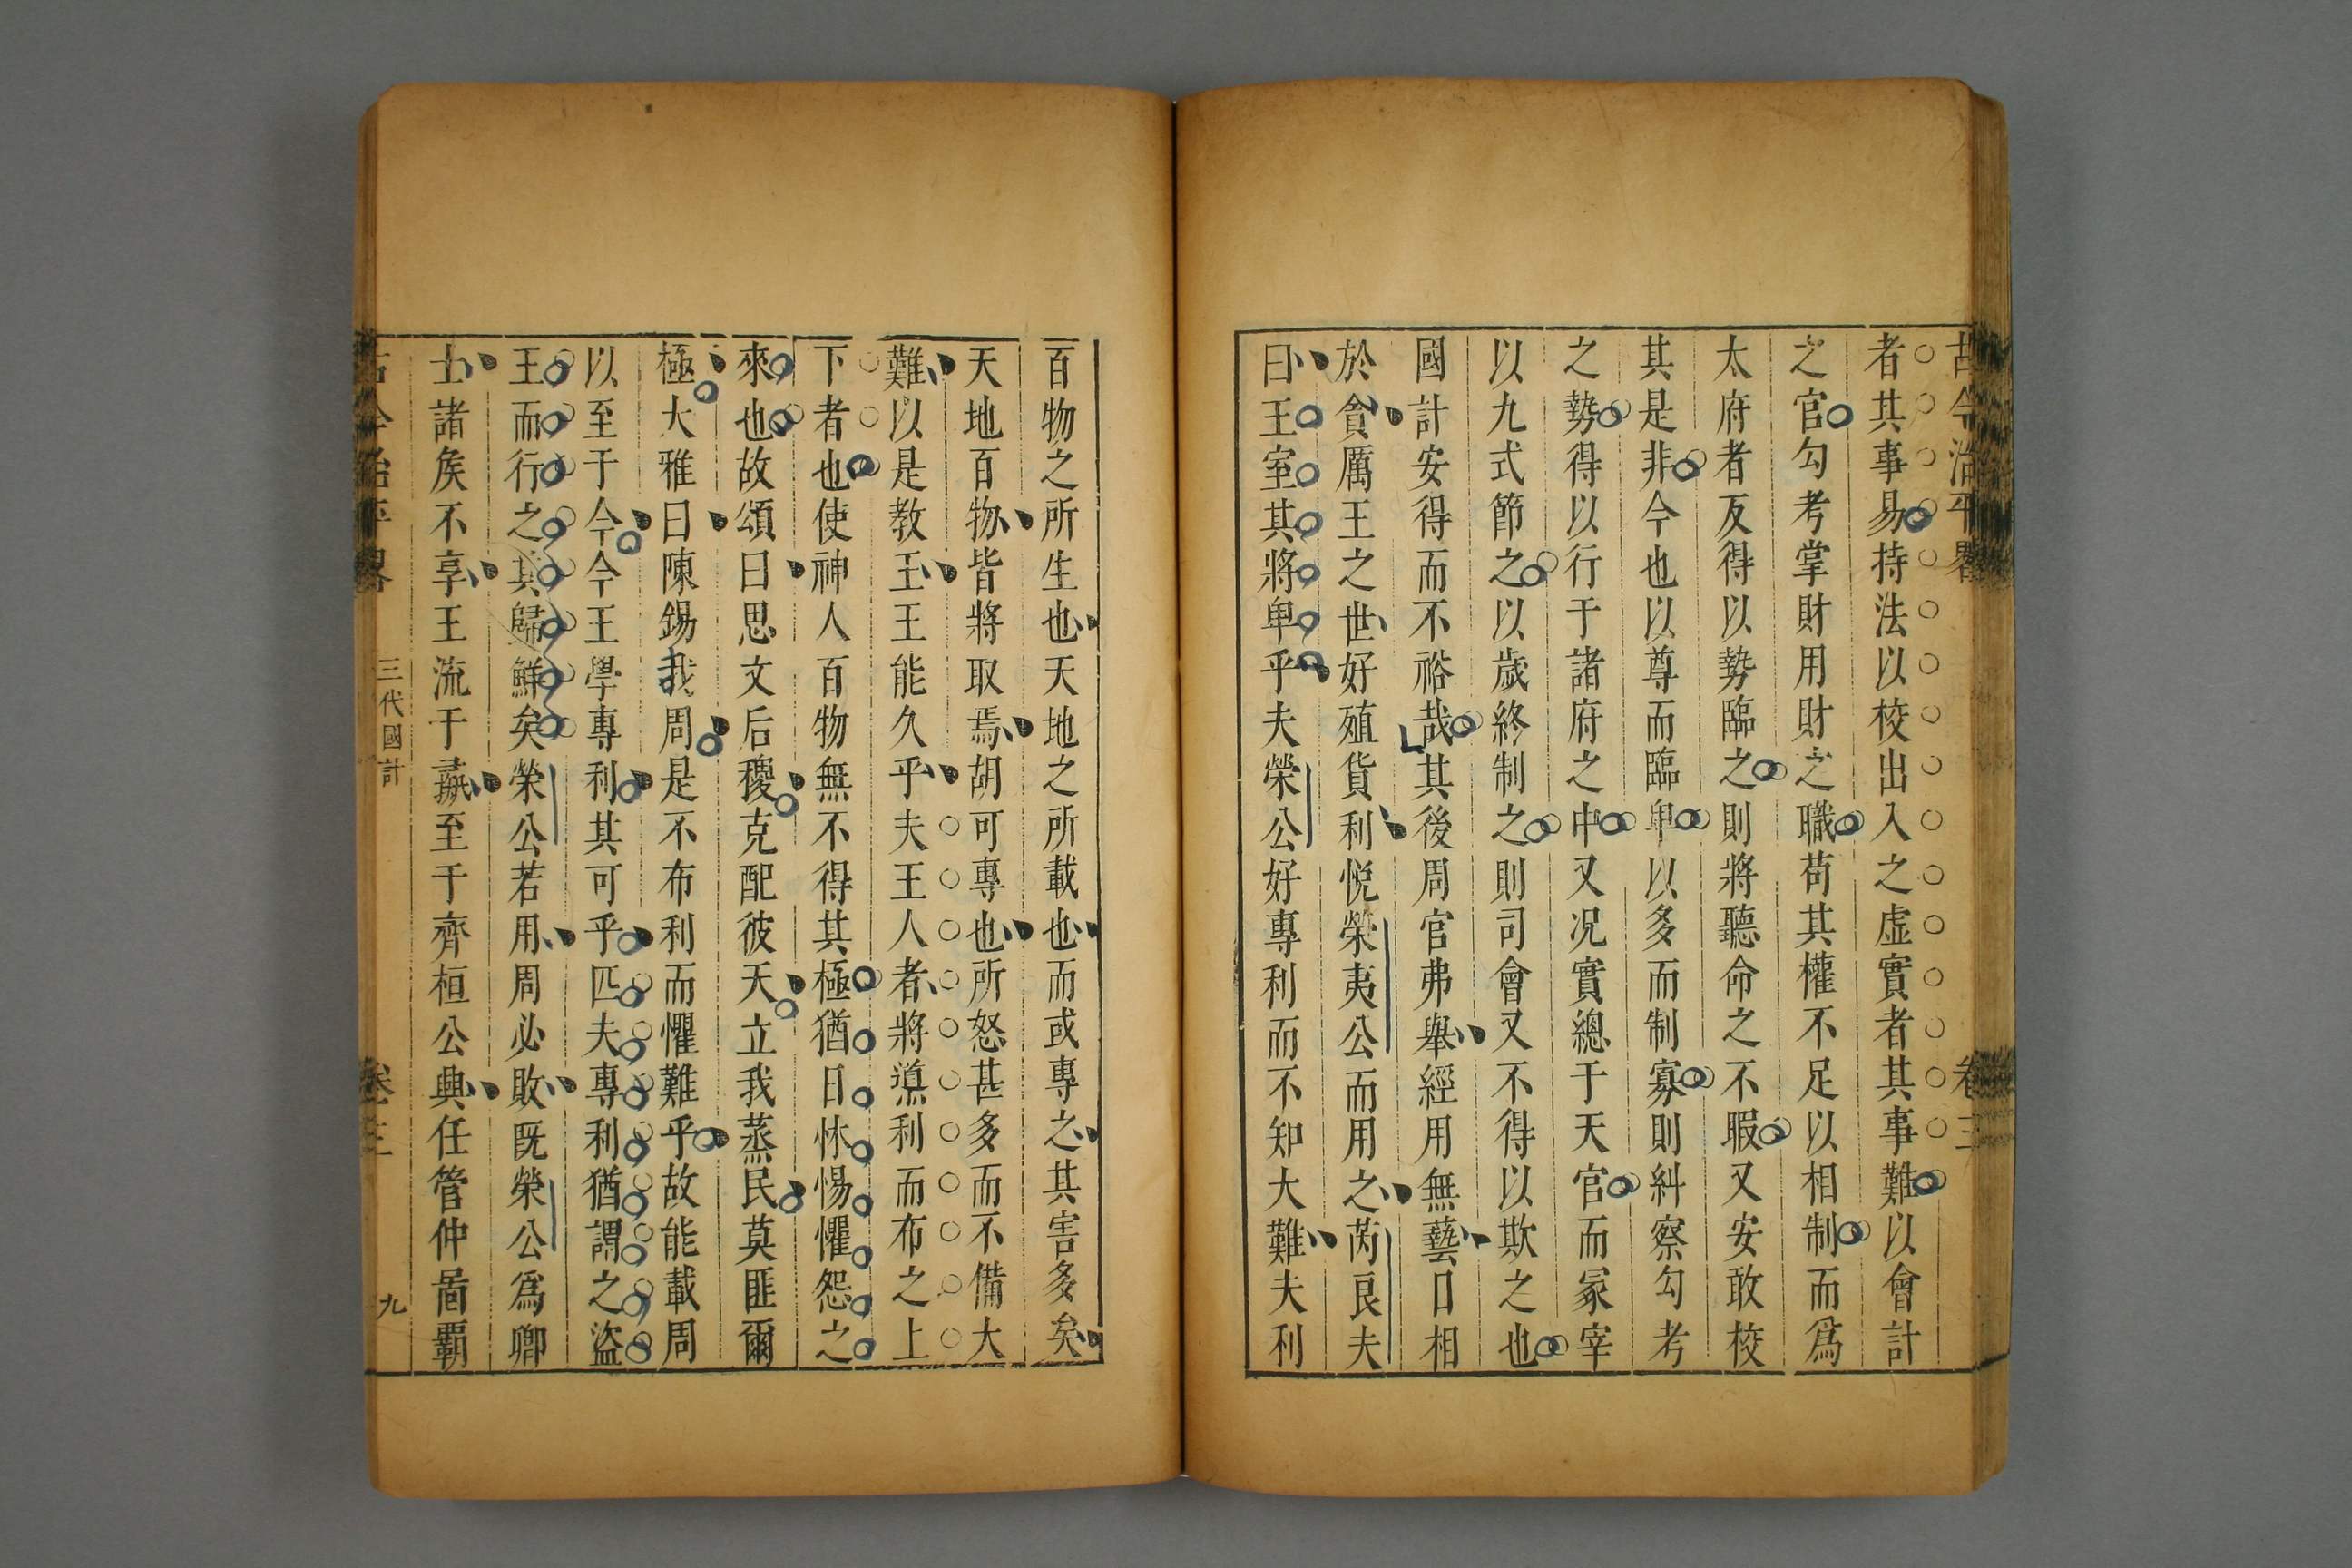 古今治平畧 卷三
者其事易持法以校出入之虛實者其事難以會計
之官勾考掌財用財之職苟其權不足以相制而爲
太府者反得以勢臨之則將聽命之不暇又安敢校
其是非今也以尊而臨卑以多而制寡則糾察勾考
之勢得以行于諸府之中又况實總于天官而冢宰
以九式節之以歲終制之則司會又不得以欺之也
國計安得而不裕哉其後周官弗舉經用無藝日相
於貪厲王之世好殖貨利悅榮夷公而用之芮良夫
曰王室其將卑乎夫榮公好專利而不知大難夫利
百物之所生也天地之所載也而或專之其害多矣
天地百物皆將取焉胡可專也所怒甚多而不備大
難以是教王王能久乎夫王人者將導利而布之上
下者也使神人百物無不得其極猶日怵惕懼怨之
來也故頌曰思文后稷克配彼天立我蒸民莫匪爾
極大雅曰陳錫我周是不布利而懼難乎故能載周
以至于今今王學專利其可乎匹夫專利猶謂之盜
王而行之其歸鮮矣榮公若用周必敗旣榮公爲卿
士諸矦不享王流于彘至于齊桓公興任管仲啚覇
古今治平畧 三代國計 卷三 九